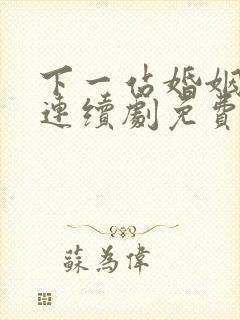 下一站婚姻
連續劇免費
蘇為偉